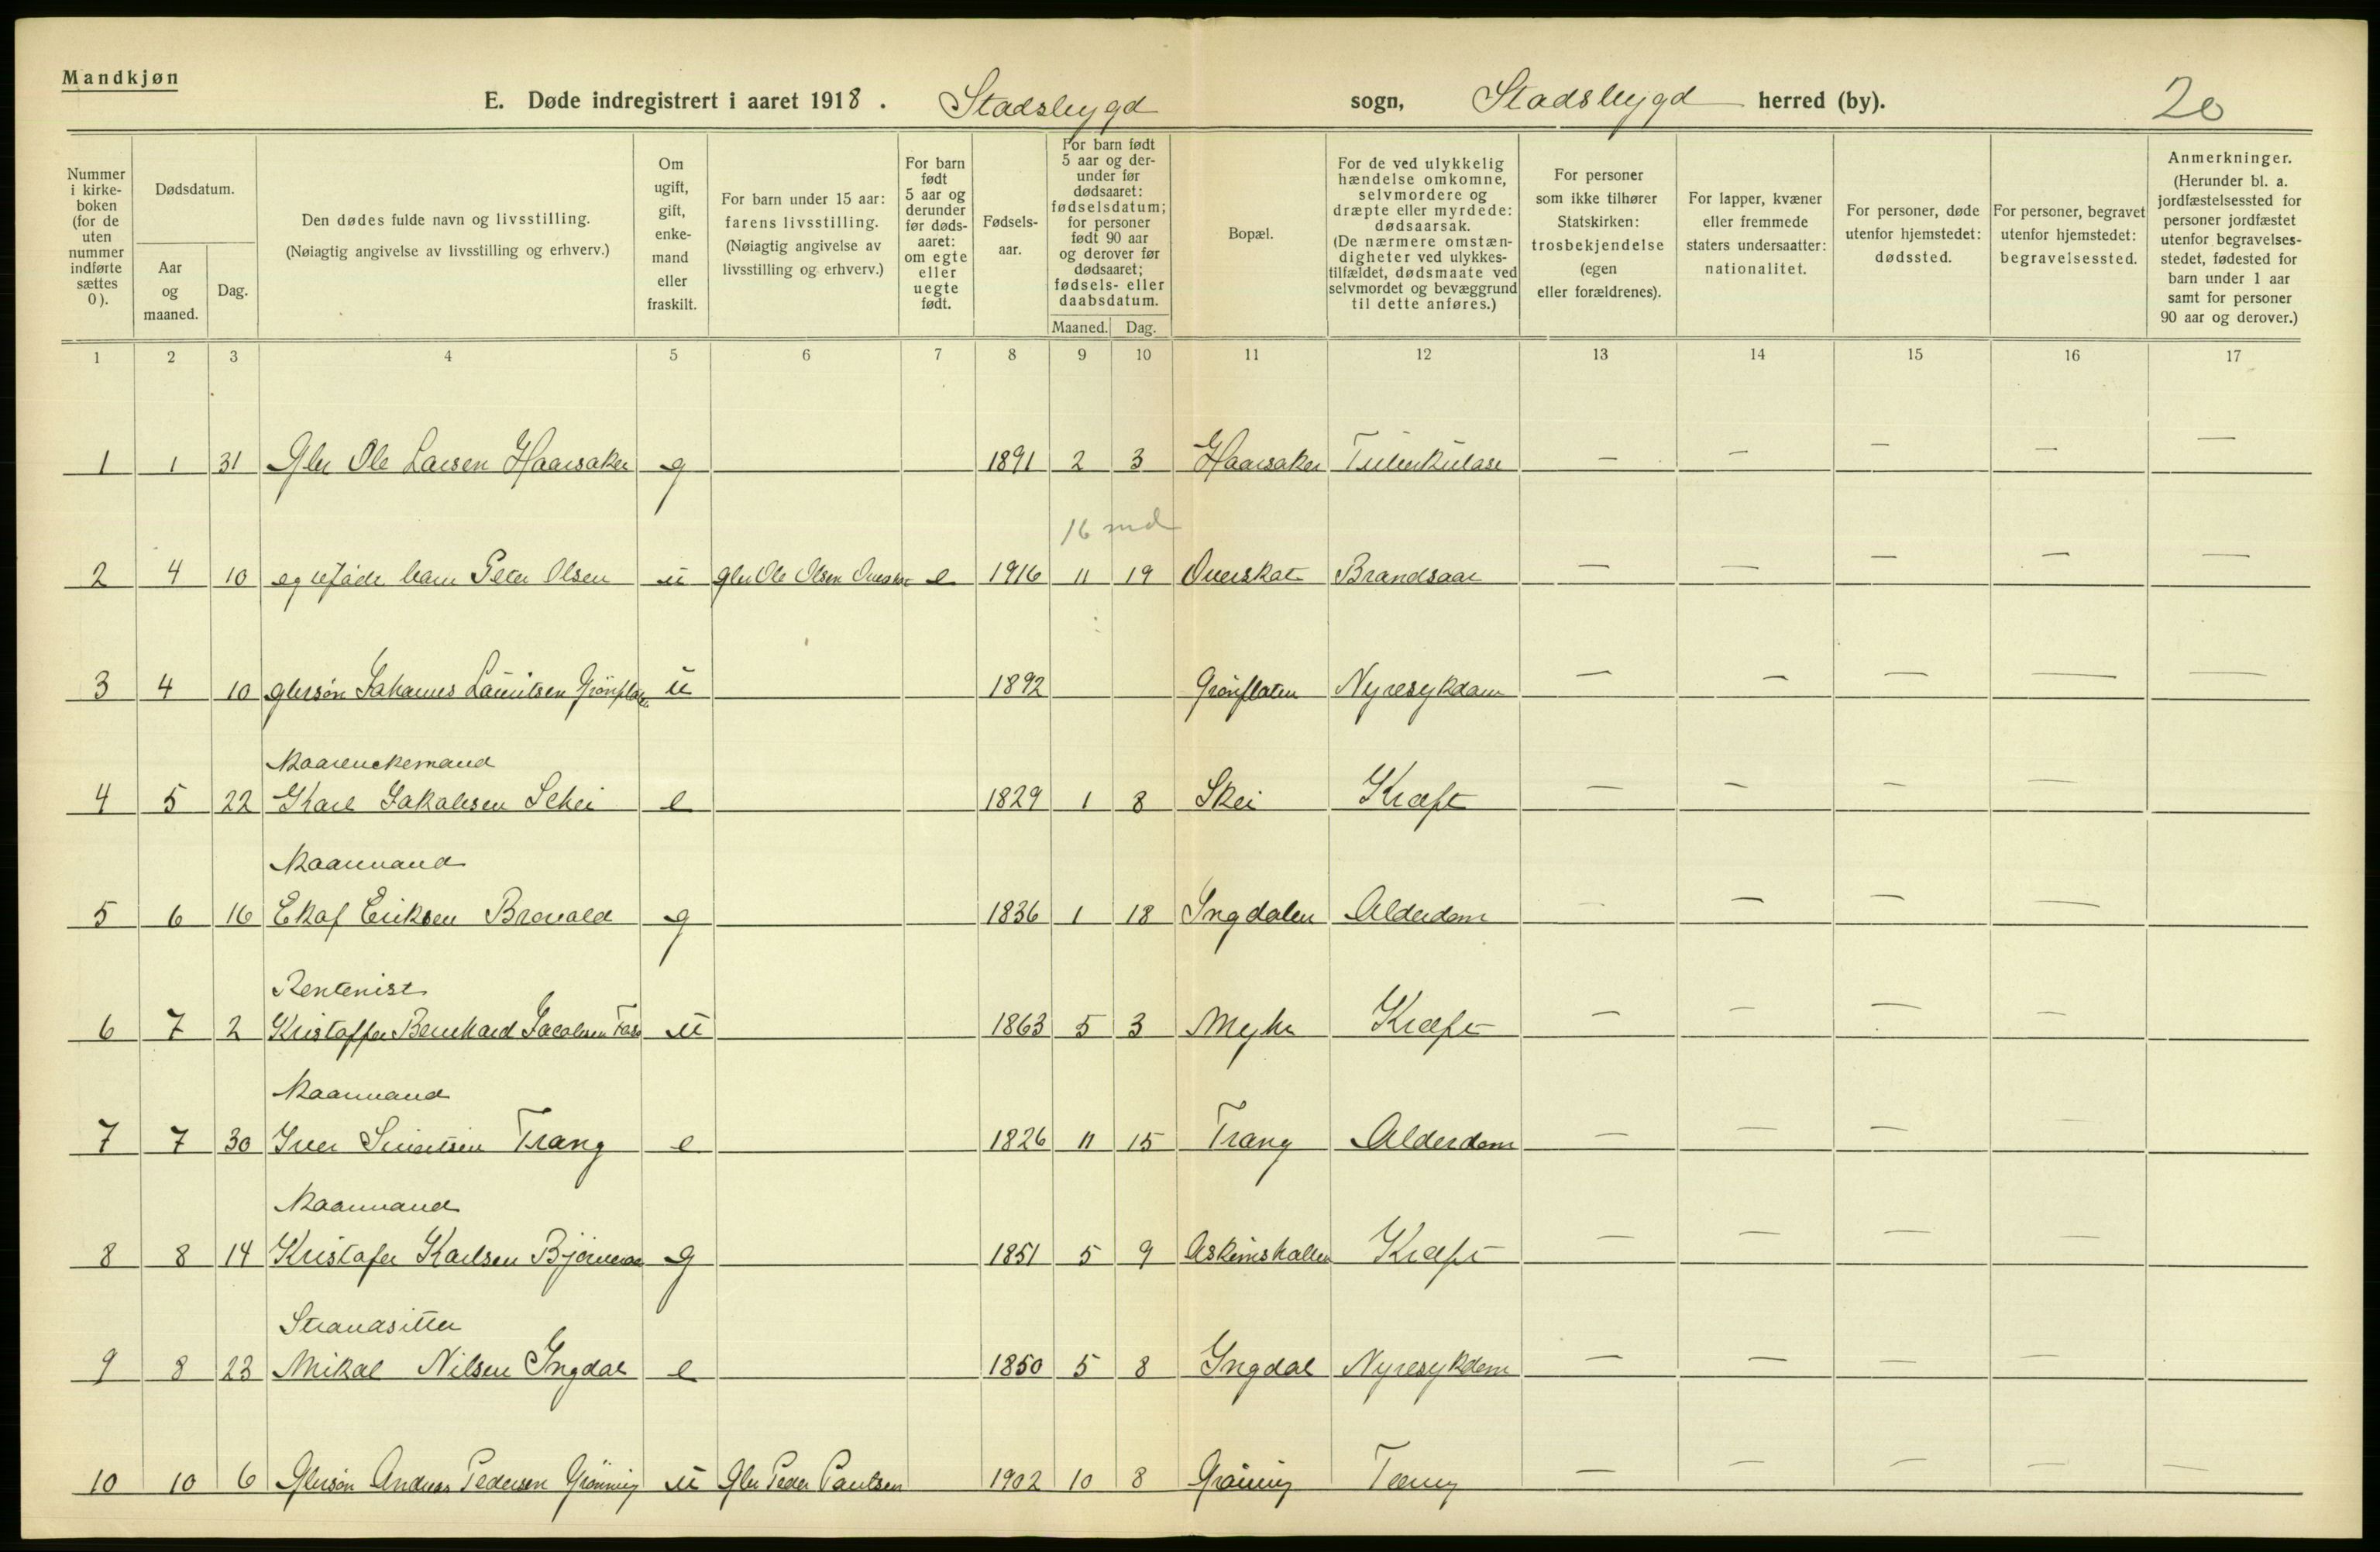 Mandkjøn
E. Døde indregistrert i aaret 1918. Stadsbygd sogn, Stadsbygd herred (by). 20
Nummer i kirke-boken (for de uten nummer indførte sættes 0).
Dødsdatum.
Aar og maaned.
Dag.
Den dødes fulde navn og livsstilling.
(Nøiagtig angivelse av livsstilling og erhverv.)
Om ugift, gift, enke-mand eller fraskilt.
For barn under 15 aar: farens livsstilling. (Nøiagtig angivelse av livsstilling og erhverv.)
For barn født 5 aar og derunder før døds-aaret: om egte eller uegte født.
Fødsels-aar.
For barn født 5 aar og der-under før dødsaaret: fødselsdatum; for personer født 90 aar og derover før dødsaaret; fødsels- eller daabsdatum.
Maaned. Dag.
Bopæl.
For de ved ulykkelig hændelse omkomne, selvmordere og dræpte eller myrdede: dødsaarsak. (De nærmere omstæn-digheter ved ulykkes-tilfældet, dødsmaate ved selvmordet og bevæggrund til dette anføres.)
For personer som ikke tilhører Statskirken: trosbekjendelse (egen eller forældrenes).
For lapper, kvæner eller fremmede staters undersaatter: nationalitet.
For personer, døde utenfor hjemstedet: dødssted.
For personer, begravet utenfor hjemstedet: begravelsessted.
Anmerkninger. (Herunder bl. a. jordfæstelsessted for personer jordfæstet utenfor begravelses-stedet, fødested for barn under 1 aar samt for personer 90 aar og derover.)
1 2 3 4 5 6 7 8 9 10 11 12 13 14 15 16 17
1 1 31 Gbr Ole Larsen Haarsaker g 1891 2 3 Haarsaker Tuberkulose — — — — —
16 md
2 4 10 barn Peter Olsen u gbr Ole Olsen e 1916 11 19 Overskot Brandsaar — — — — —
3 4 10 gbrsøn Johannes Lauritsen Grønflaten u 1892 Grønflaten Nyresykdom — — — — —
Kaarenkemand
4 5 22 Karl Jakobsen Schei e 1829 1 8 Skei Kræft — — — —
Kaarmand
5 6 16 Eriksen g 1836 1 18 Ingdalen Alderdom — — — —
Rentenist
6 7 2 Kristoffer Bernhard Jacobsen u 1863 5 3 Myhr Kræft — — — —
Kaarmand
7 7 30 Iver Sivertsen Trang e 1826 11 15 Trang Alderdom — — — —
Kaarmand
8 8 14 Kristofer Karlsen g 1851 5 9 Kræft — — — —
Strandsitter
9 8 23 Mikal Nilsen Ingdal e 1850 5 8 Ingdal Nyresykdom — — — — —
10 10 6 Gbrsøn Andreas Pedersen Grønning u Gbr Peder Paulsen 1902 10 8 Grønning Tæring — — — — —